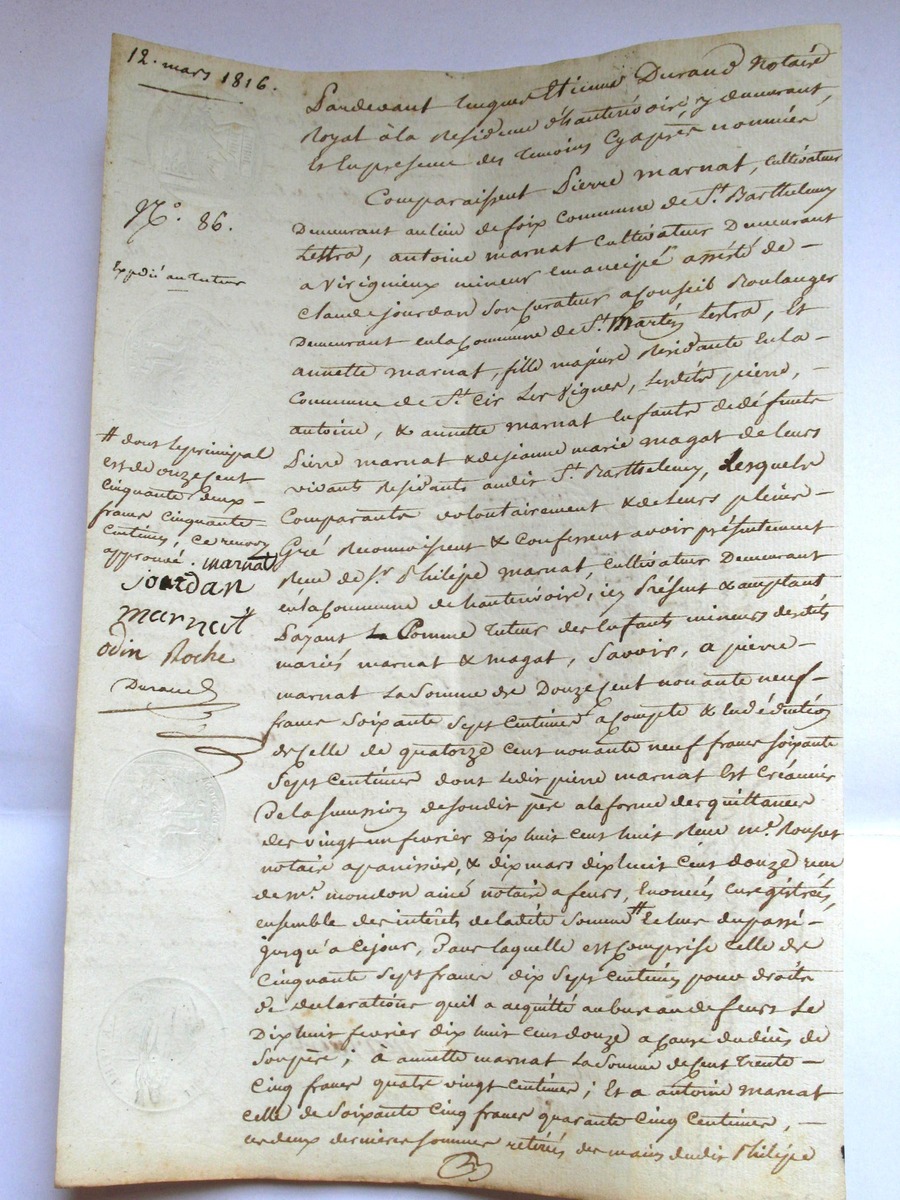 12. mars 1816.
Pardevant Jacques Etienne Durand Notaire
Royal à la Residence d'hauterivoire, y demeurant,
Et En presence des temoins Cy après nommés
Comparaissent Pierre marnat, Cultivateur
Demeurant au lieu de foix Commune de St. Barthelemy
Lestra, antoine marnat Cultivateur Demeurant
a Virigneux mineur Emancipé assisté de -
Claude jourdan Son Curateur a Conseil Boulanger
Demeurant en la Commune de St. Martin Lestra, Et
annette marnat, fille majeure Residante En la -
Commune de St. Cir Les Vignes, Lesdits pierre, -
antoine, & annette marnat Enfants de défunts
Pierre marnat & de jeanne marie magat de leurs
vivants Residants audit St. Barthelemy, Lesquels
Comparants volontairement & de leurs pleins -
Gré Reconnoissent & Confessent avoir présentement
Reçu de Sr. Philipe marnat, Cultivateur Demeurant
en la Commune de hauterivoire, icy Présent & acceptant
Payant Comme tuteur des Enfants mineurs desdits
mariés marnat & magat, Savoir, a pierre -
marnat La Somme de Douze Cent nonante neuf -
francs Soixante Sept Centimes a Compte & En déduction
de Celle de quatorze Cent nonante neuf francs Soixante
Sept Centimes dont Ledit pierre marnat Est Créancier
De la Succession de Sondit père a la forme des quittances
des vingt un fevrier Dix huit cent huit Reçu me. Rousset
notaire a panissière, & dix mars dix huit Cent douze reçu
de me. mondon ainé notaire a feurs, Enoncés Enregistrées,
ensemble des intérêts de ladite Somme # Echus du passé -
jusqu'a Cejour, Dans laquelle est Comprise Celle de
Cinquante Sept francs dix Sept Centimes pour droits
de declarations qu'il a acquitté au bureau de feurs Le
Dix huit fevrier dix huit Cent douze a Cause du décès de
Son père ; à annette marnat La Somme de Cent trente -
Cinq francs quatre vingt Centimes ; Et a antoine marnat
Celle de Soixante Cinq francs quarante Cinq Centimes, -
Ces deux dernieres Sommes retirés des mains dudit Philipe
No. 86.
Expedié au tuteur
# dont le principal
est de onze Cent
Cinquante deux -
francs Cinquante
Centimes, Ce renvoy
approuvé. marnat
Jourdan
marnat
odin Roche
Durand